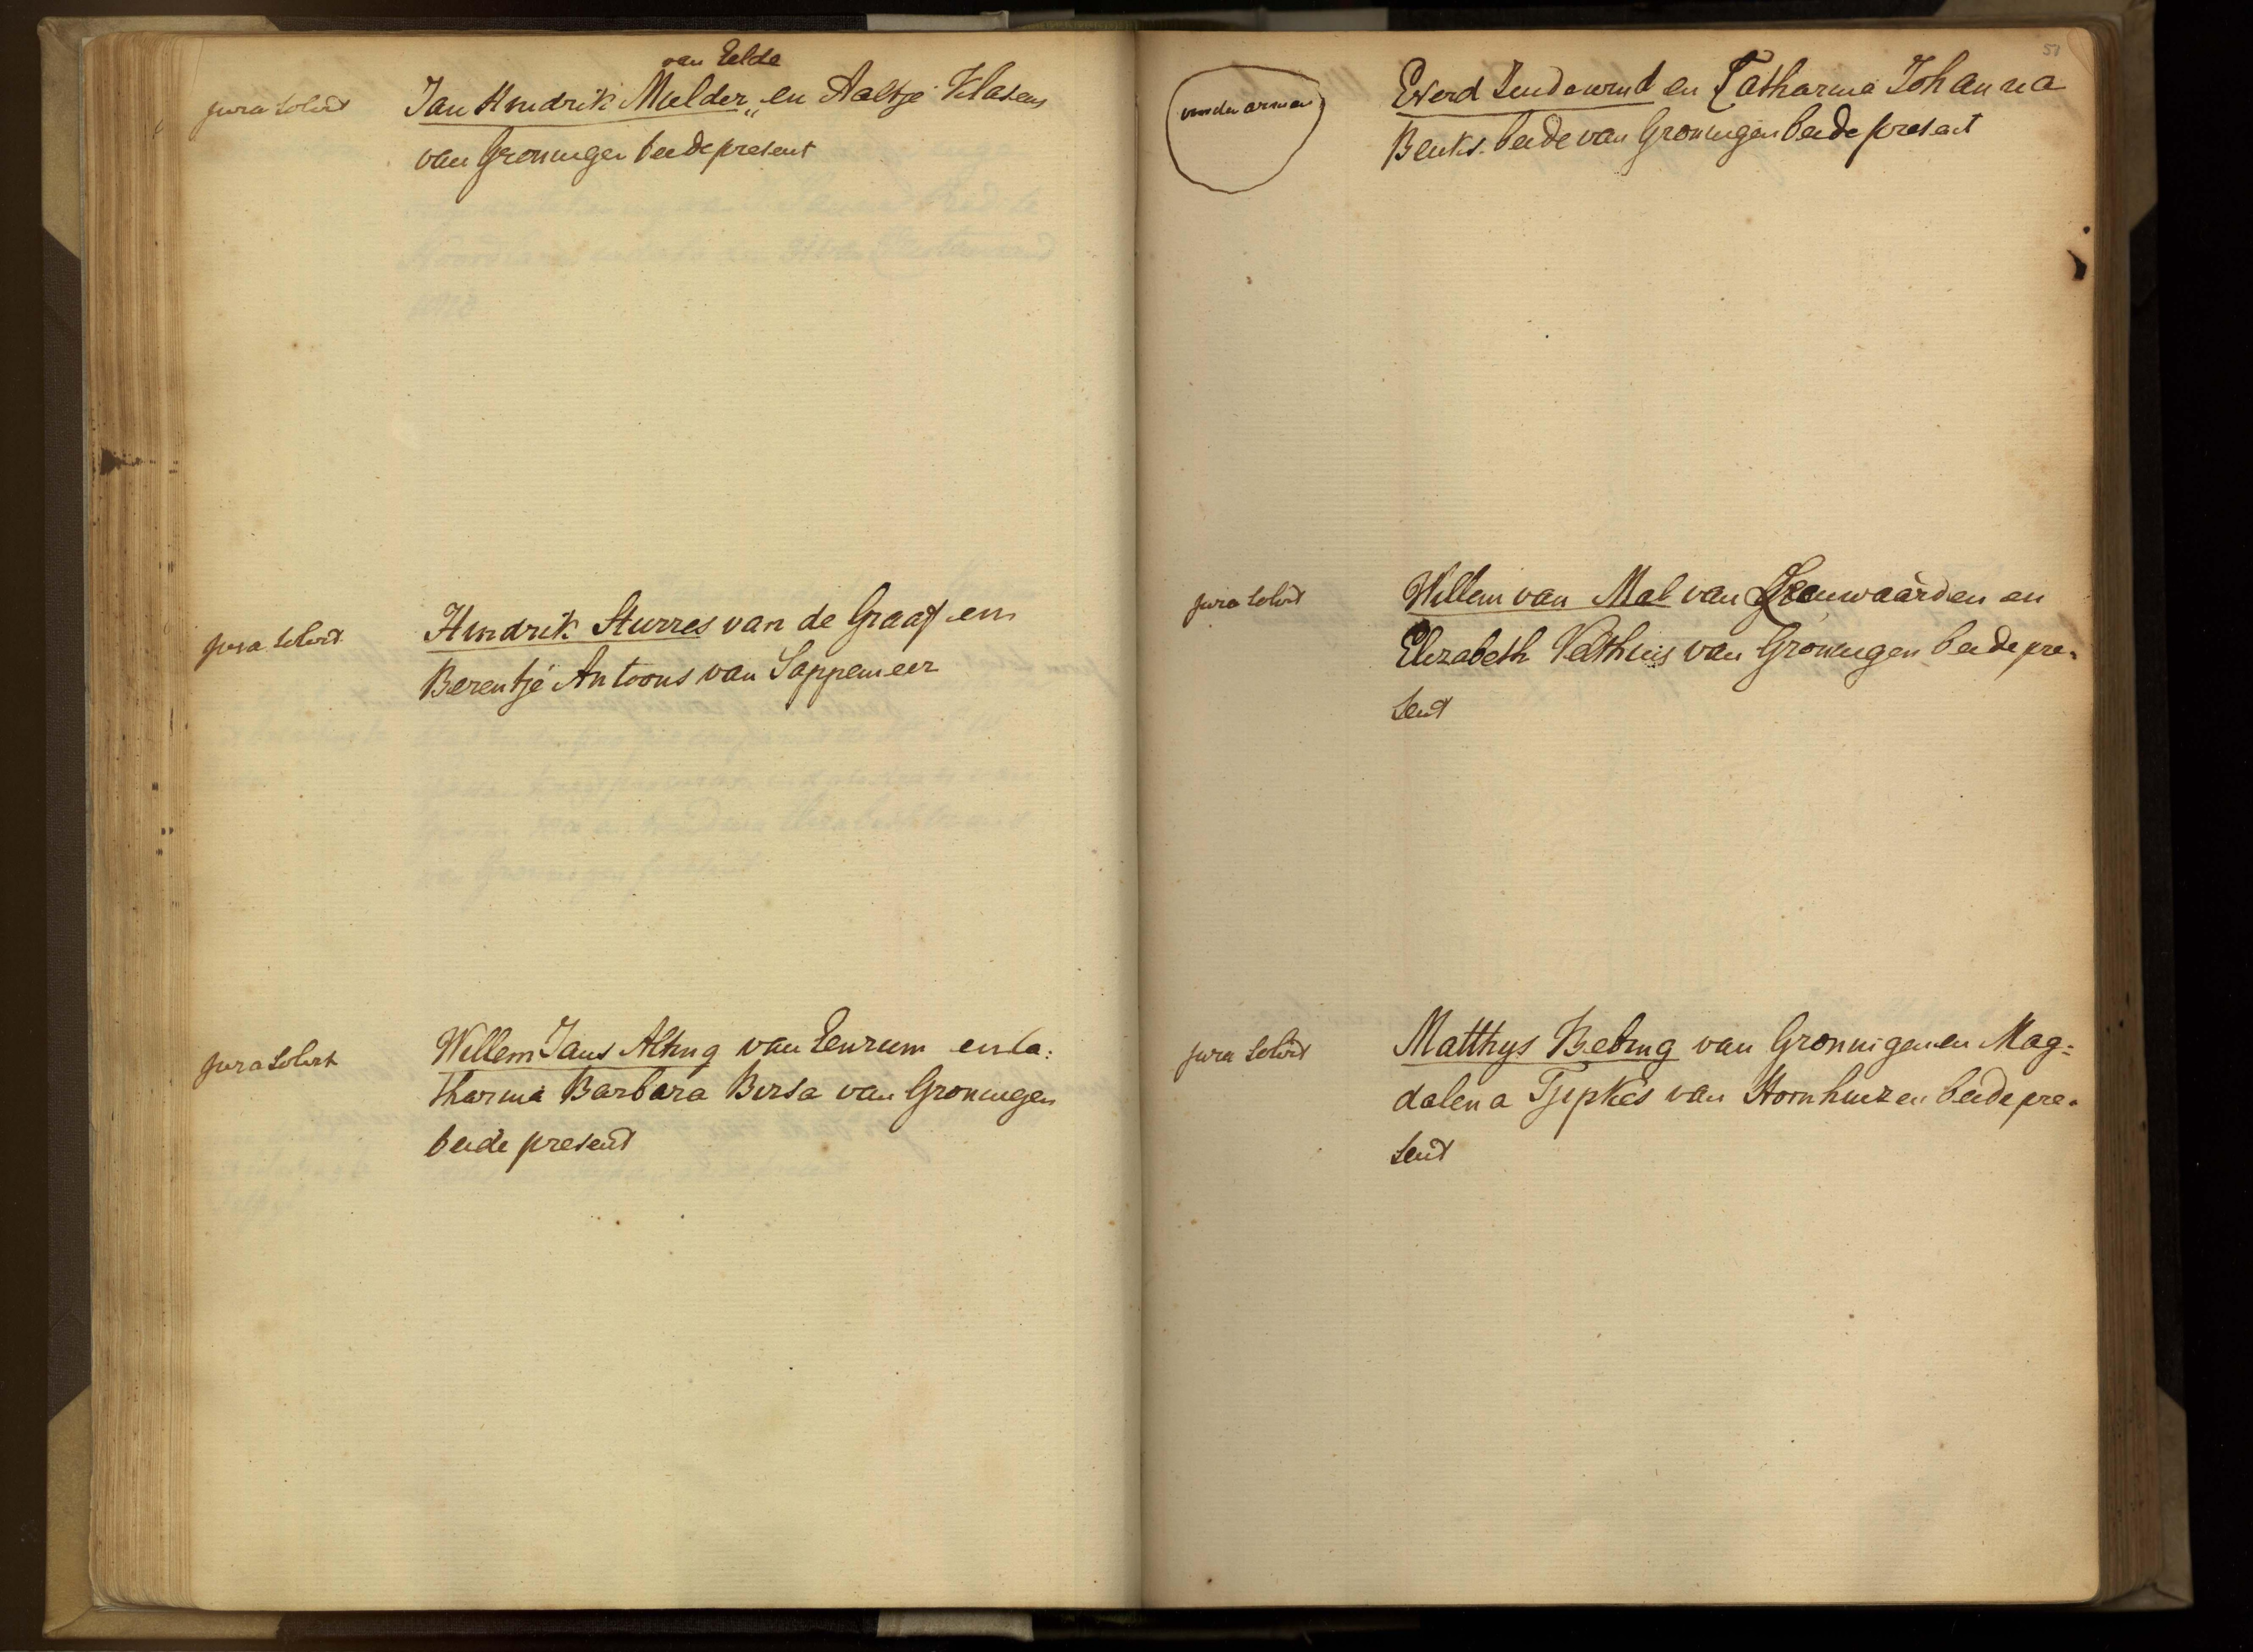 van Eelde
jura solvit Jan Hindrik Mulder „ en Aaltje Klasens
van Groningen beide present
jura solvit Hindrik Sturres van de Graaf en
Berentje Antoons van Sappemeer
jura solvit Willem Jans Alting van Eenrum en Ca:
tharina Barbara Birsa van Groningen
beide present
51
van den armen Everd en Catharina Johanna
Benks. beide van Groningen beide present
jura solvit Willem van Mal van Leeuwaarden en
Elizabeth Velthuis van Groningen beide pre=
sent
jura solvit Matthys Bebing van Groningen en Mag=
dalena Tjipkes van Hornhuizen beide pre=
sent